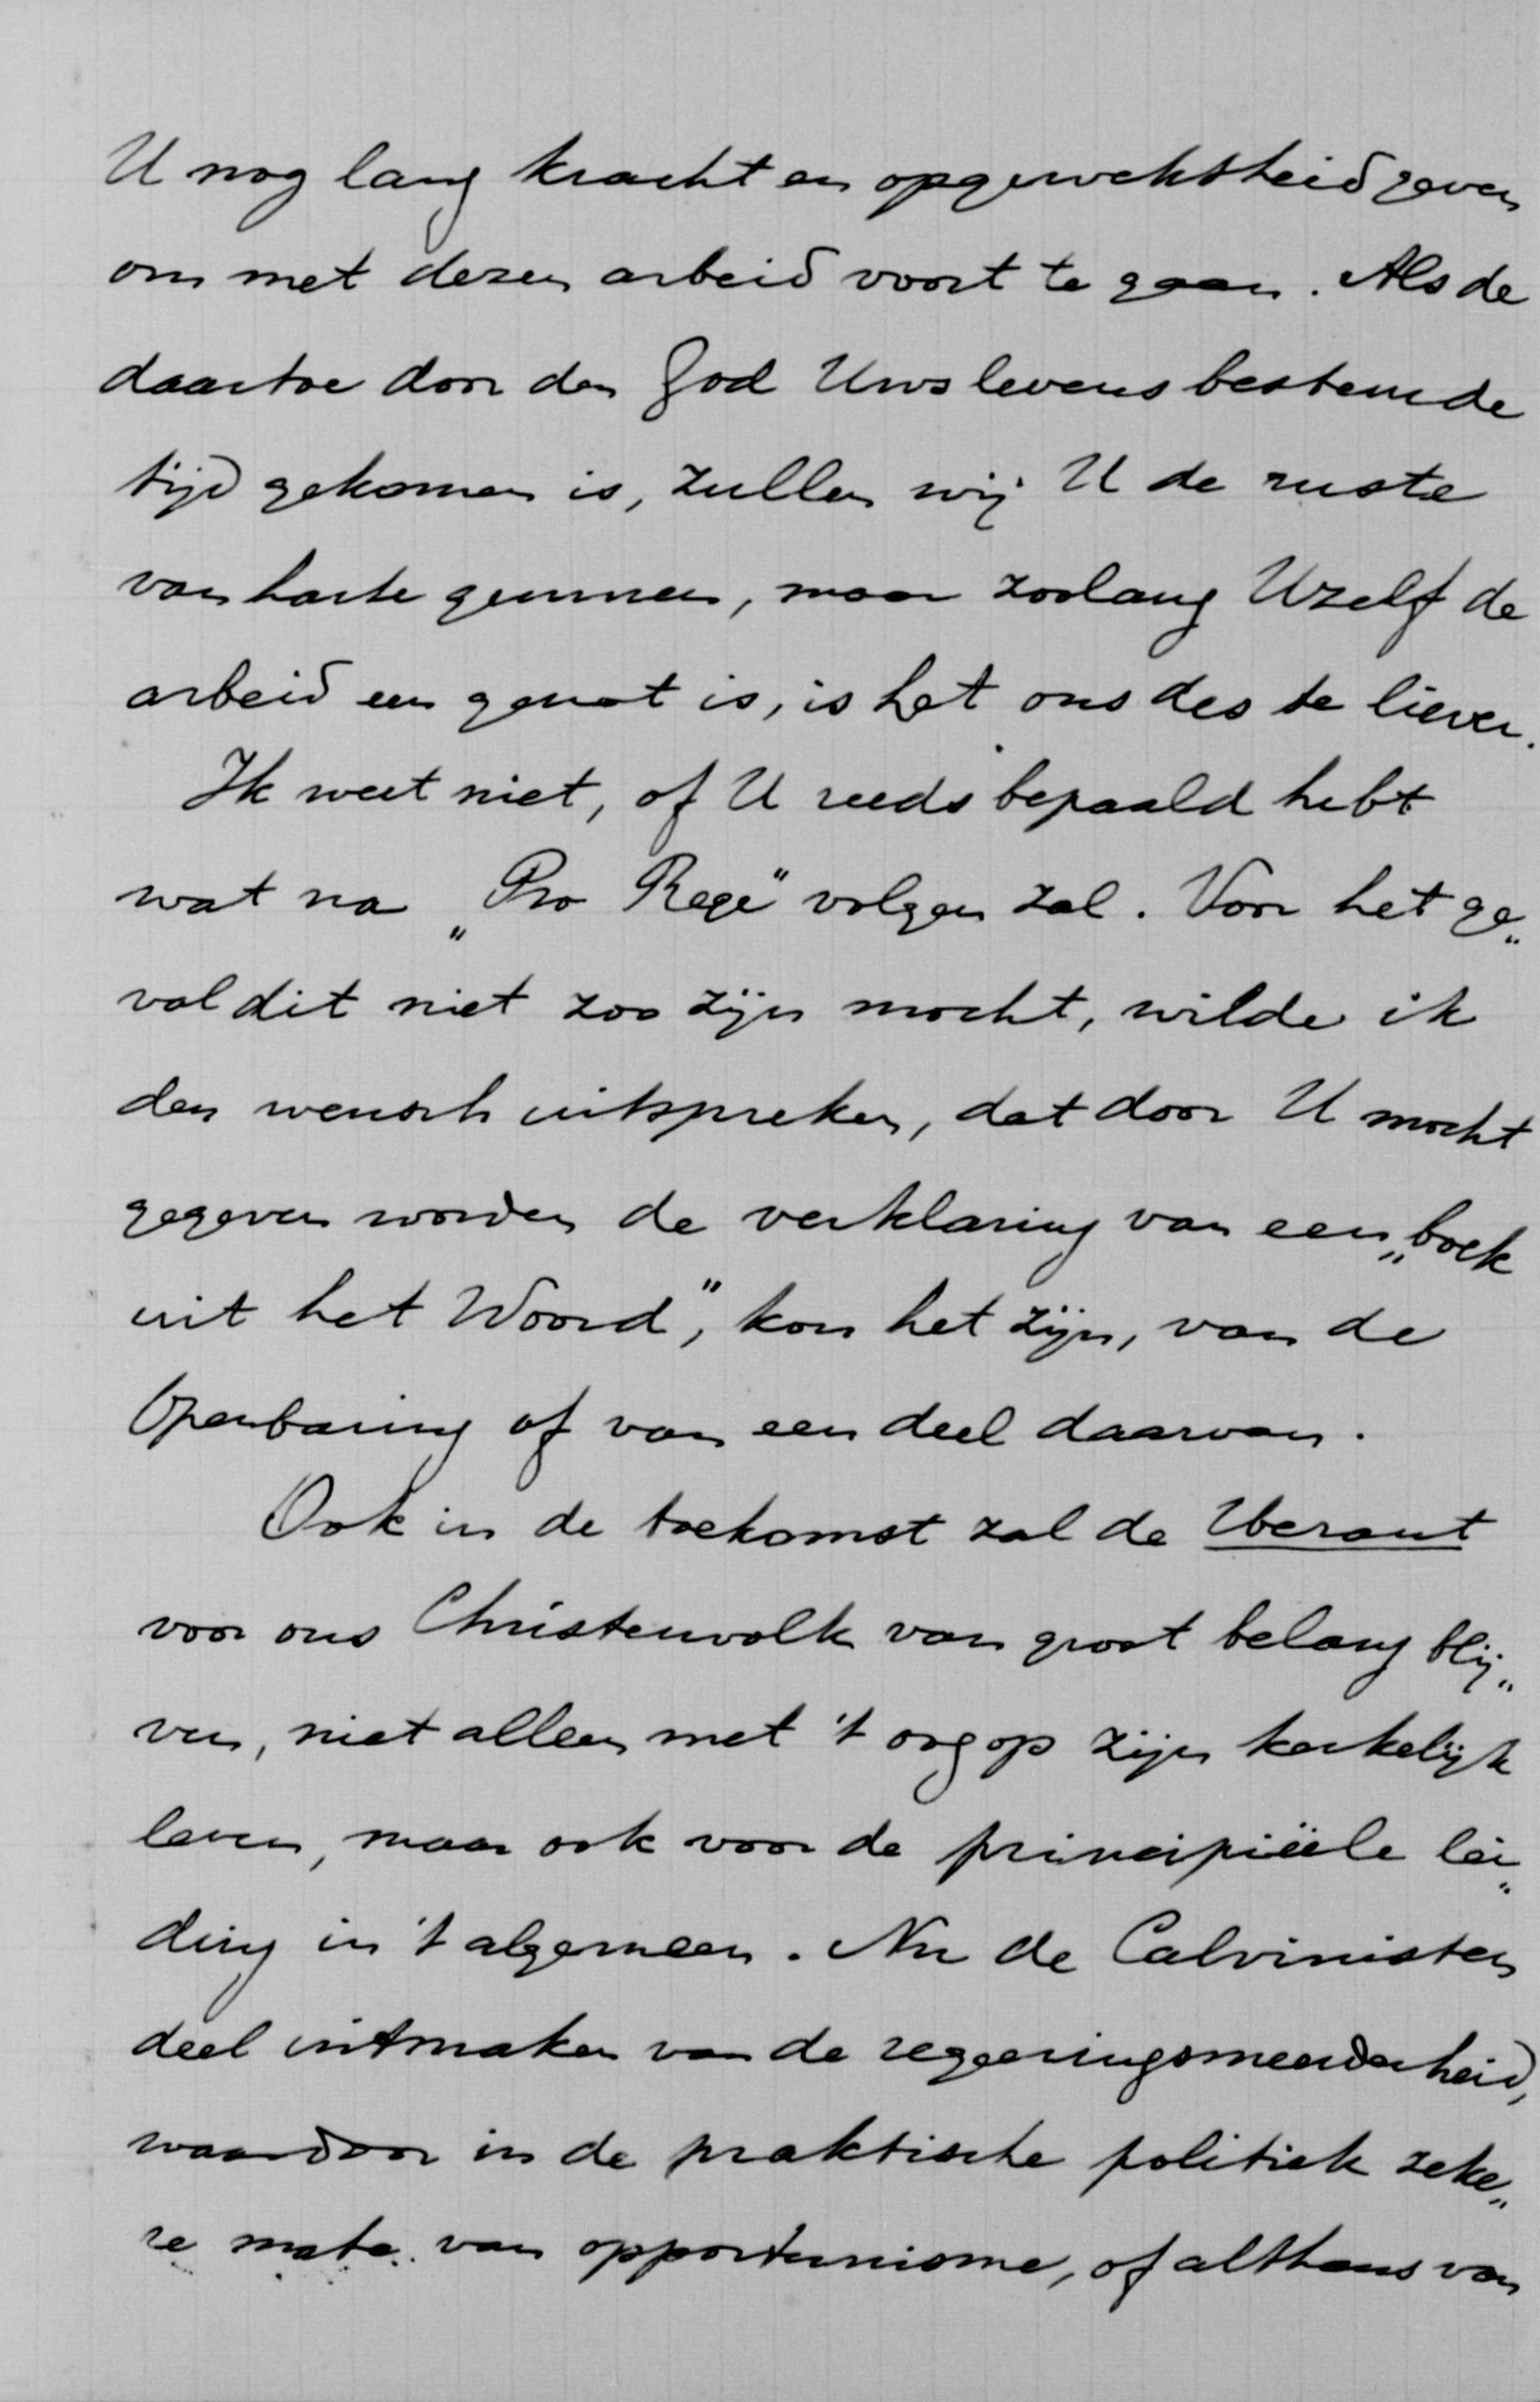 U nog lang kracht en opgewektheid geven
om met dezen arbeid voort te gaan. Als de
daartoe door den God Uws levens bestemde
tijd gekomen is, zullen wij U de ruste
van harte gunnen, maar zoolang Uzelf de
arbeid een genot is, is het ons des te liever.
Ik weet niet, of U reeds bepaald hebt
wat na „Pro Rege" volgen zal. Voor het ge„
val dit niet zoo zijn mocht, wilde ik
den wensch uitspreken, dat door U mocht
gegeven worden de verklaring van een „boek
uit het Woord", kon het zijn, van de
Openbaring of van een deel daarvan.
Ook in de toekomst zal de Heraut
voor ons Christenvolk van groot belang blij„
ven, niet alleen met 't oog op zijn kerkelijk
leven, maar ook voor de principiëele lei„
ding in 't algemeen. Nu de Calvinisten
deel uitmaken van de regeeringsmeerderheid,
waardoor in de praktische politiek zeke„
re mate van opportunisme, of althans van